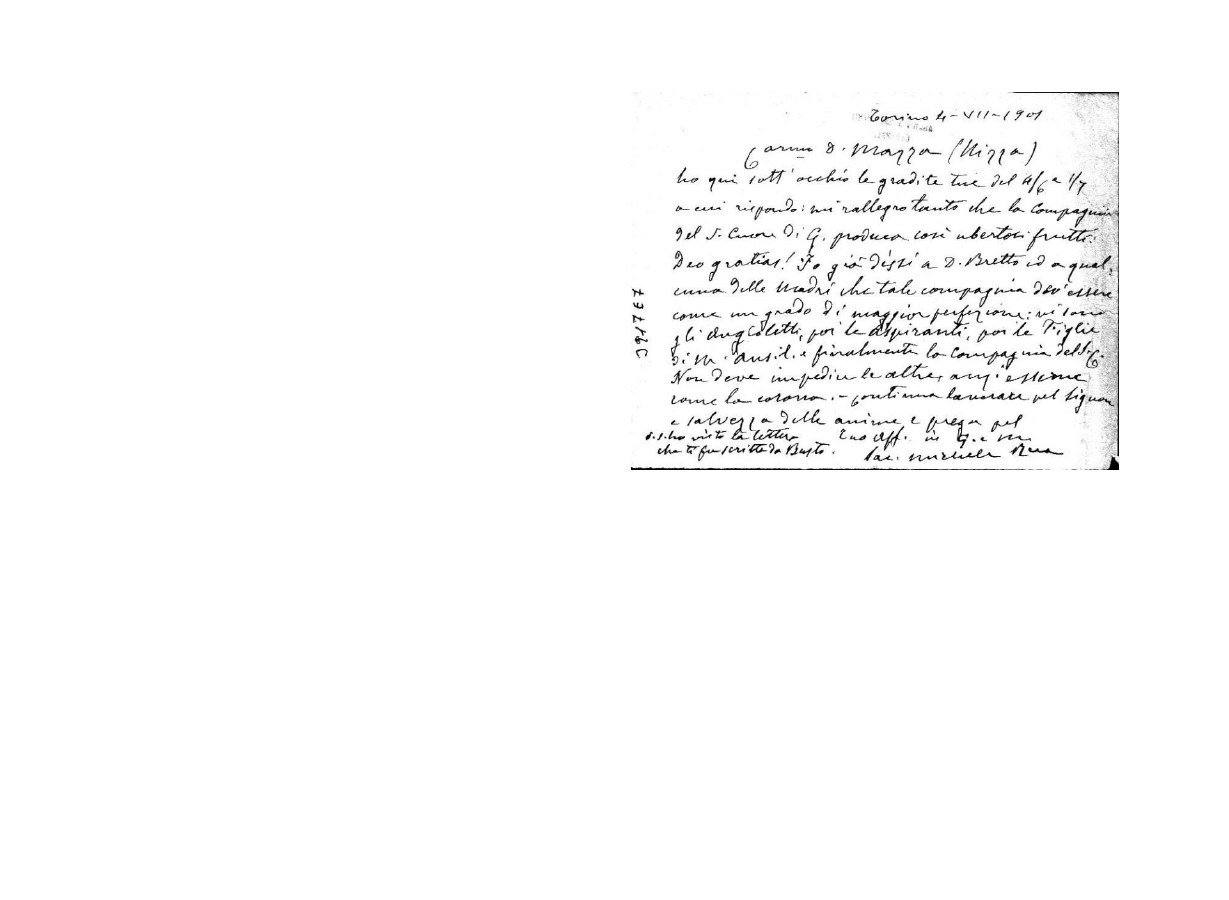 Torino 4-VII-1901
Carmo D. Mazza (Nizza)
ho qui sott'occhio le gradite tue del 4/6 e 1/7
a cui rispondo: mi rallegro tanto che la Compagnia
del S. Cuore di G. produca così ubertosi frutti.
Deo gratias! Io già dissi a D. Bretto ed a qual,
cuna delle Madri che tale compagnia dev'essere
come un grado di maggior perfezione: vi sono
gli Angioletti, poi le aspiranti, poi le Figlie
di M. Ausil. e finalmente la Compagnia del S. C.
Non deve impedire le altre, anzi esserne
come la corona. - Continua lavorare pel Signore
e salvezza delle anime e prega pel
Tuo aff. in G. e M.
Sac. Michele Rua
P.S. ho visto la lettera
che ti fu scritta da Busto.